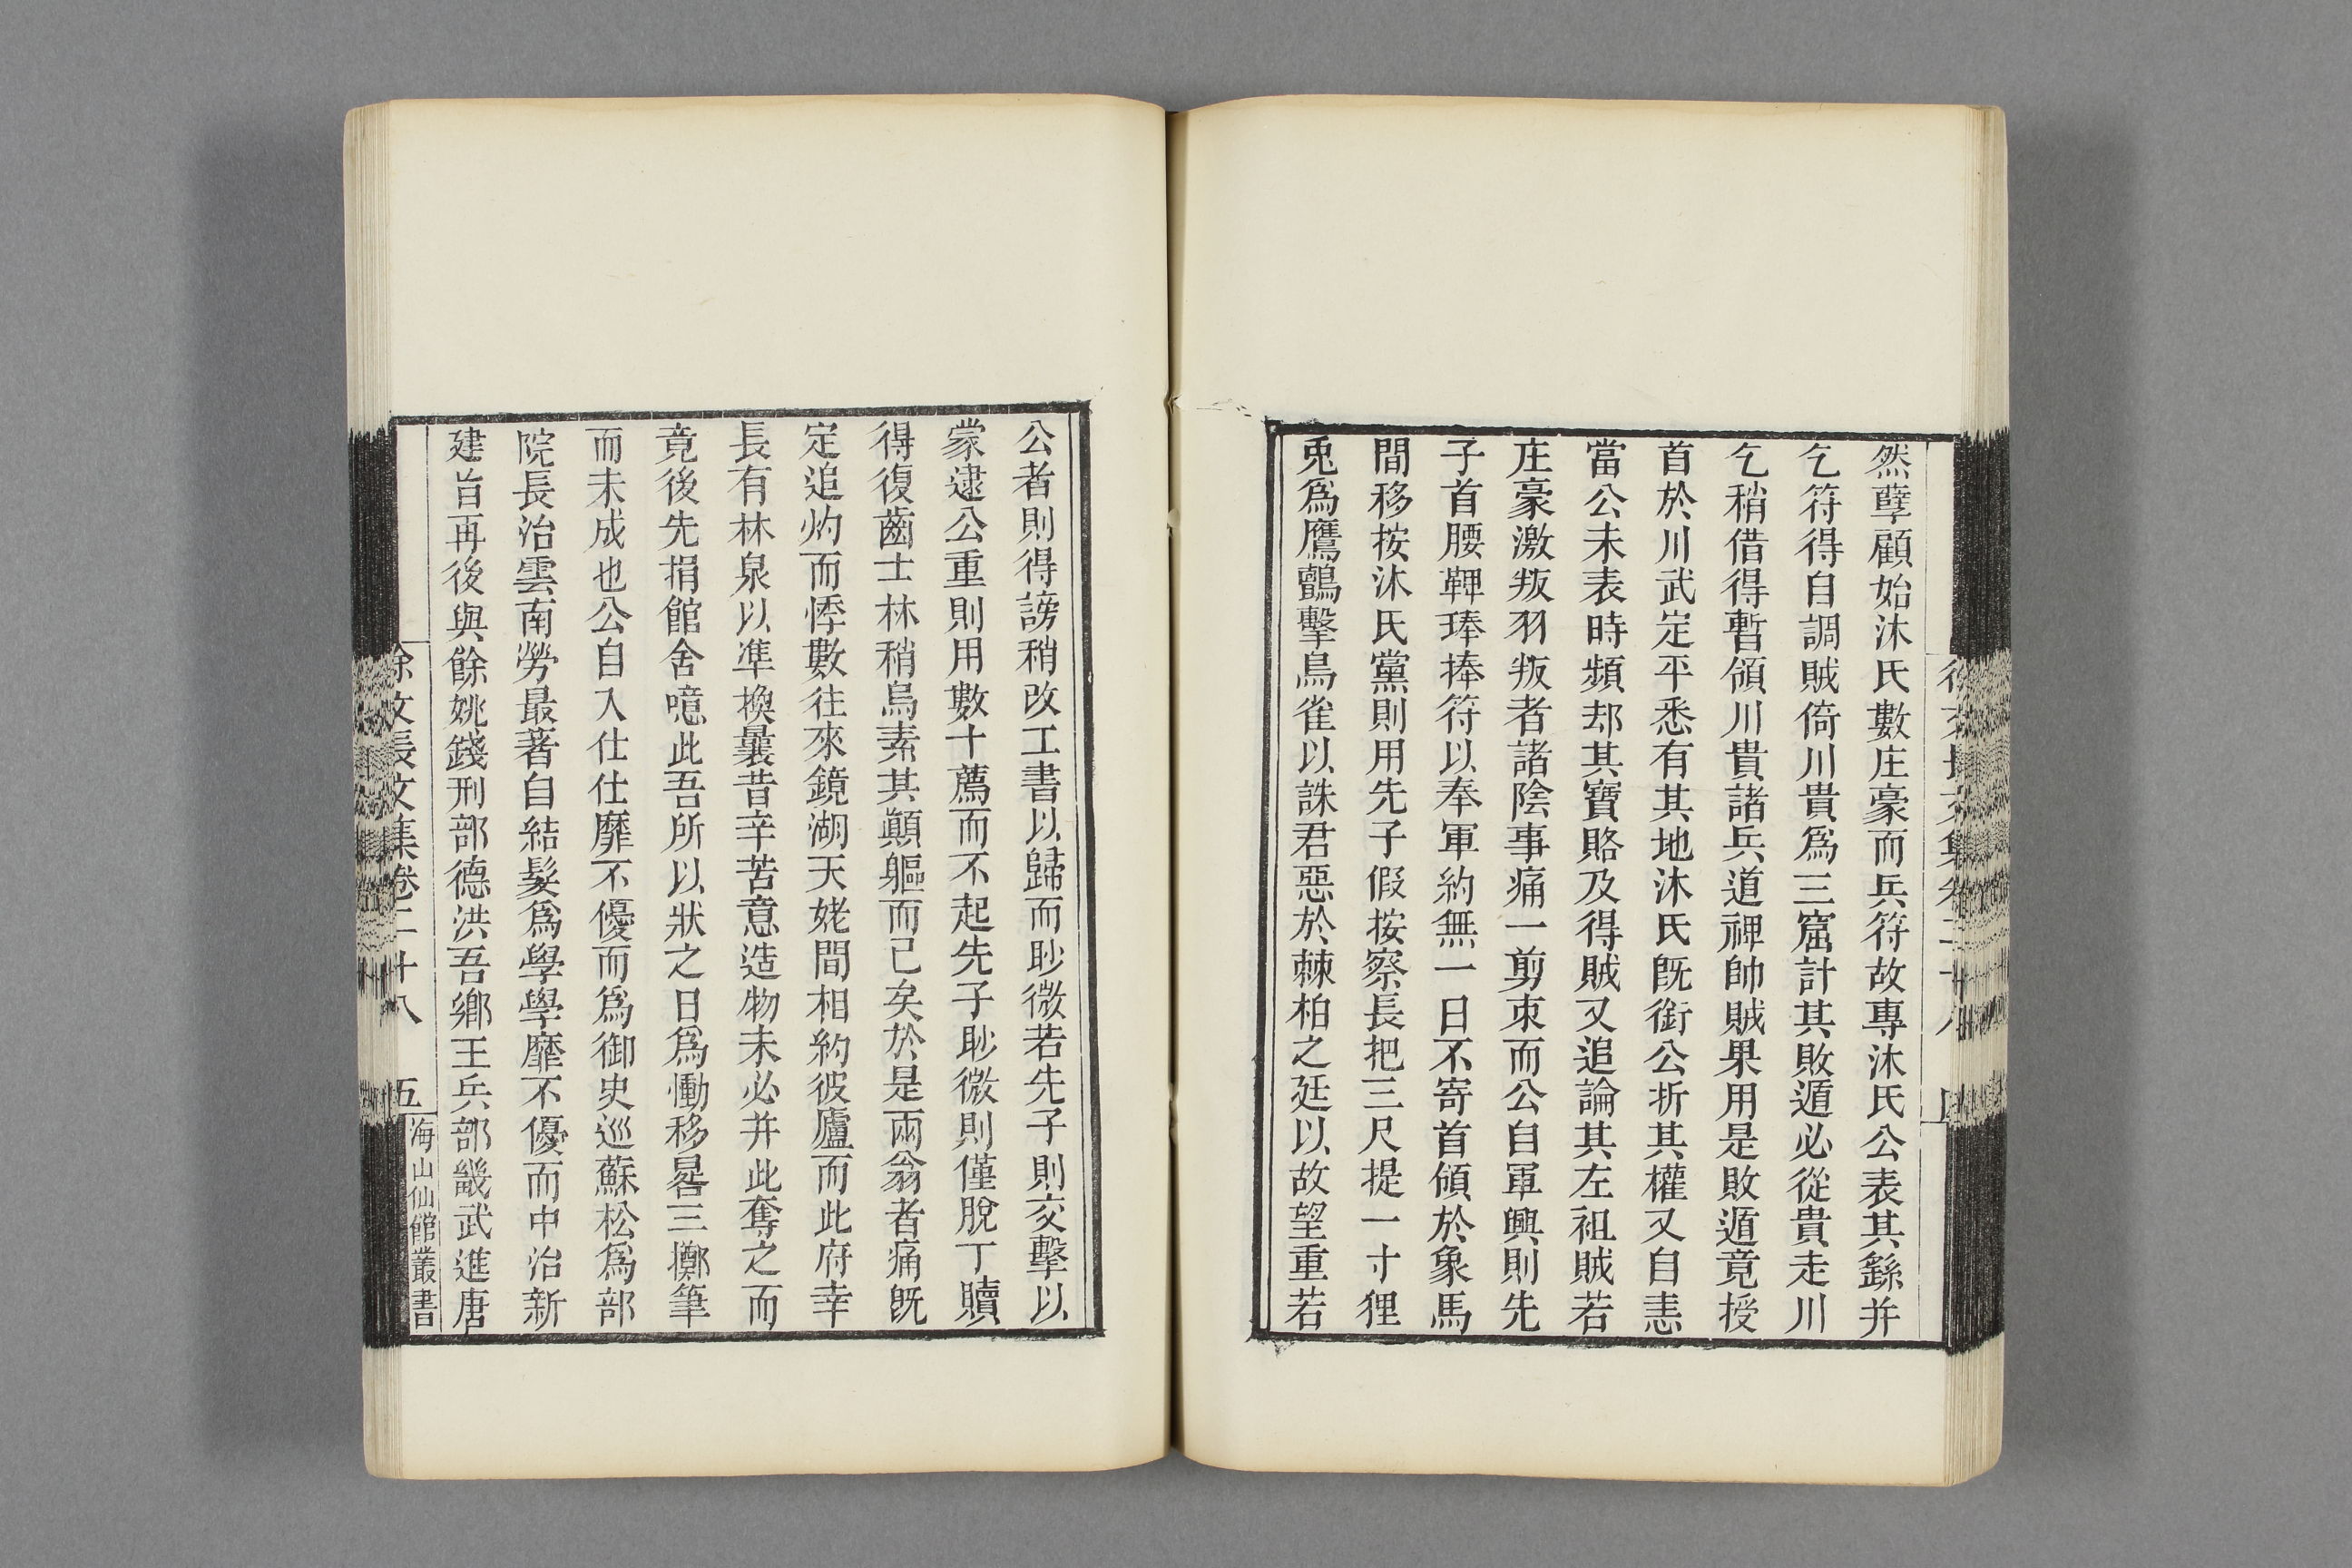 然孽顧始沐氏數庄豪而兵符故專沐氏公表其繇并
乞符得自調賊倚川貴爲三窟計其敗遁必從貴走川
乞稍借得暫領川貴諸兵道裨帥賊果用是敗遁竟授
首於川武定平悉有其地沐氏旣銜公折其權又自恚
當公未表時頻却其寶賂及得賊又追論其左袒賊若
庄豪激叛羽叛者諸陰事痛一剪朿而公自軍興則先
子首腰鞞琫捧符以奉軍約無一日不寄首領於象馬
間移按沐氏黨則用先子假按察長把三尺提一寸狸
兎爲鷹鸇擊鳥雀以誅君惡於棘柏之廷以故望重若
公者則得謗稍改工書以歸而眇微若先子則交擊以
蒙逮公重則用數十薦而不起先子眇微則僅脫丁贖
得復齒士林稍烏素其顚軀而已矣於是兩翁者痛旣
定追灼而悸數往來鏡湖天姥間相約彼廬而此府幸
長有林泉以凖換曩昔辛苦意造物未必并此奪之而
竟後先捐館舍噫此吾所以狀之日爲慟移晷三擲筆
而未成也公自入仕仕靡不優而爲御史巡蘇松爲部
院長治雲南勞最著自結髮爲學學靡不優而中治新
建旨再後與餘姚錢刑部德洪吾鄉王兵部畿武進唐
徐文長文集卷二十八 五
海山仙館叢書